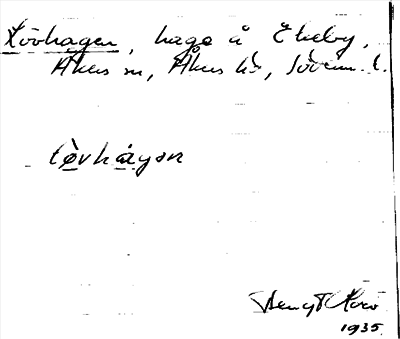 Lövhagen, hage å Ekeby,
Åkers sn, Åkers hd, Söderm. l.
løvhagen
Bengt
1935